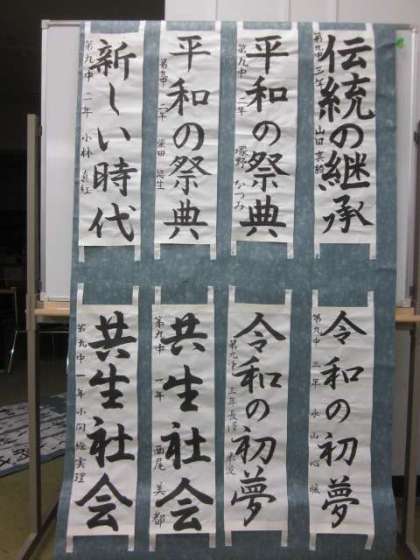 伝統の継承
第九中 三年 山口
平和の祭典
第九中 二年 塚野 なつみ
平和の祭典
第九中 二年 柴田
新しい時代
第九中 二年 小林 真紅
令和の初夢
第九中 三年 永山 心
令和の初夢
第九中 三年 長
共生社会
第九中 一年 西尾 美都
共生社会
第九中 一年 小関